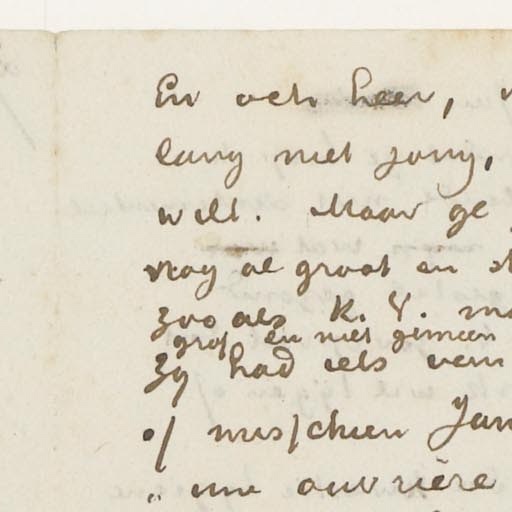 En och heer,
lang niet jong,
will. Maar ge
nog al groot en st
zooals K. V. ma
grof en niet gemeen
Zy had iets van
of misschien Jan
„une ouvrière